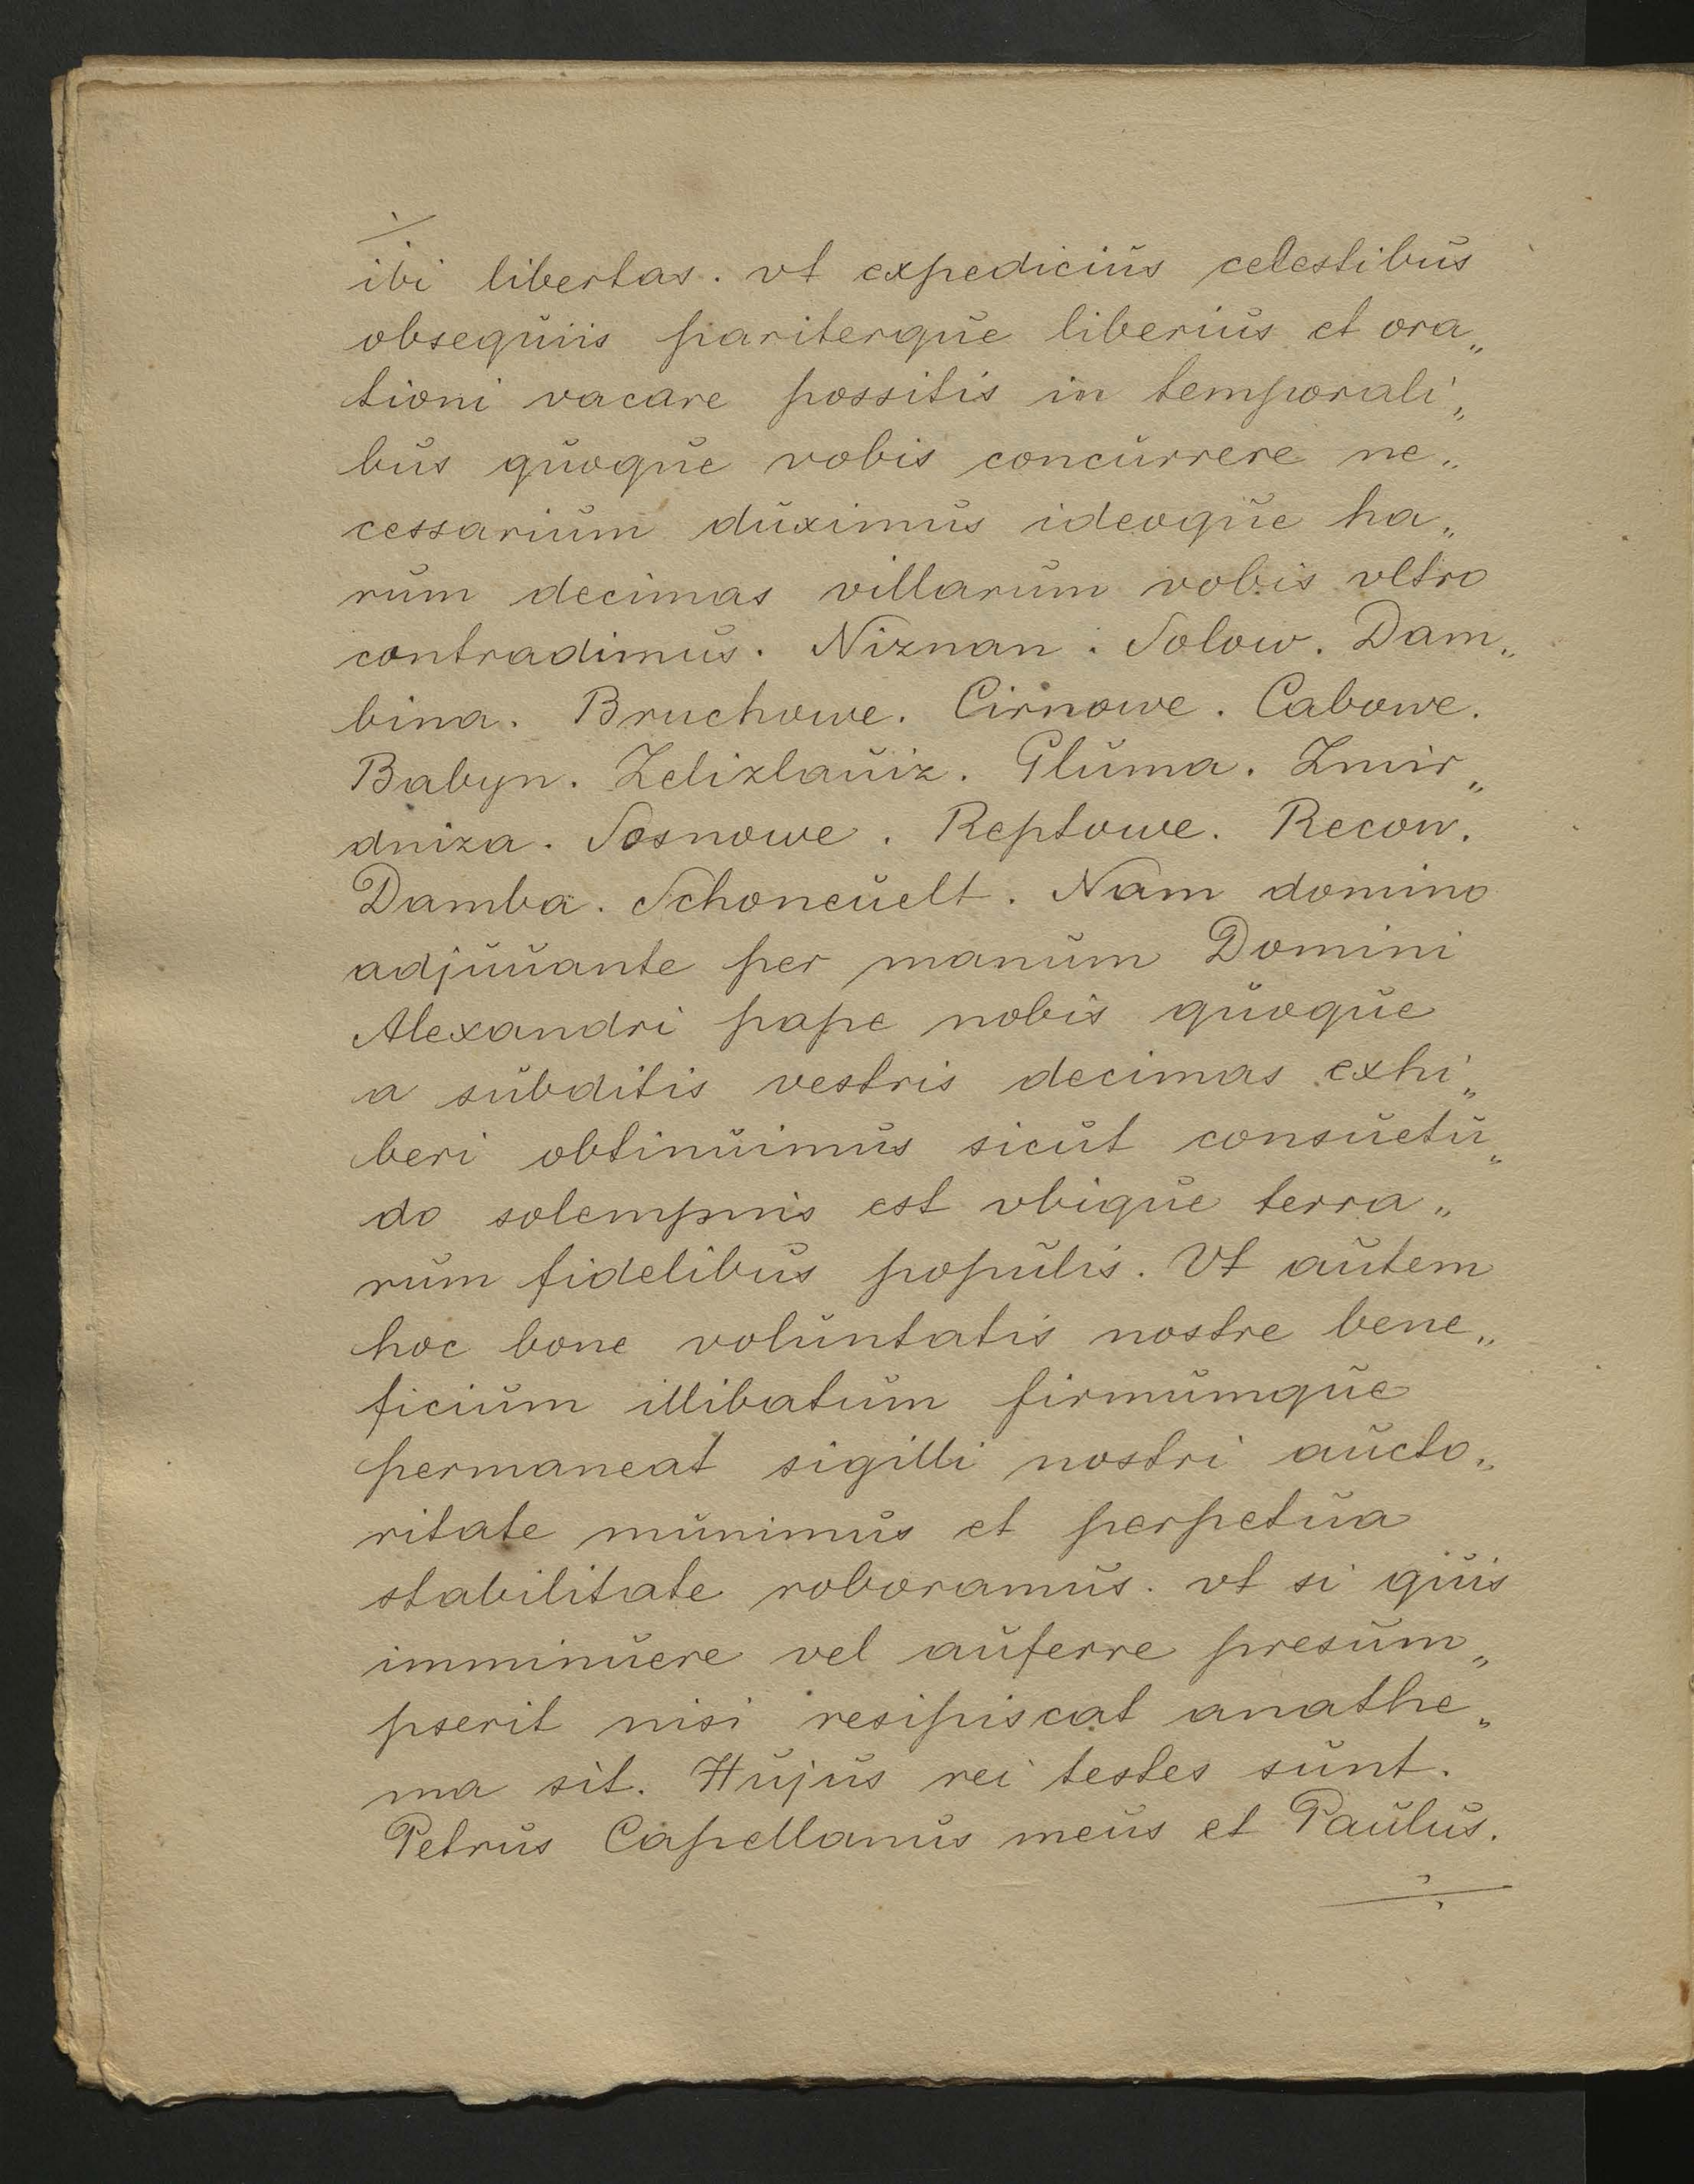 ibi libertas. vt expedicius celestibus
obsequiis pariterque liberius et ora„
tioni vacare possitis in temporali„
bus quoque vobis concurrere ne„
cessarium duximus ideoque ha„
rum decimas villarum vobis vltro
contradimus. Niznan. Solow. Dam„
bina. Bruchowe. Cirnowe. Cabowe.
Babyn. Zelizlauiz. Gluma. Zmir„
dniza. Sosnowe. Reptowe. Recow.
Damba. Schoneuelt. Nam domino
adjuuante per manum Domini
Alexandri pape nobis quoque
a subditis vestris decimas exhi„
beri obtinuimus sicut consuetu„
do solempnis est vbique terra„
rum fidelibus populis. Vt autem
hoc bone voluntatis nostre bene„
ficium illibatum firmumque
permaneat sigilli nostri aucto„
ritate munimus et perpetua
stabilitate roboramus. vt si quis
imminuere vel auferre presum„
pserit nisi resipiscat anathe„
ma sit. Hujus rei testes sunt.
Petrus Capellanus meus et Paulus.